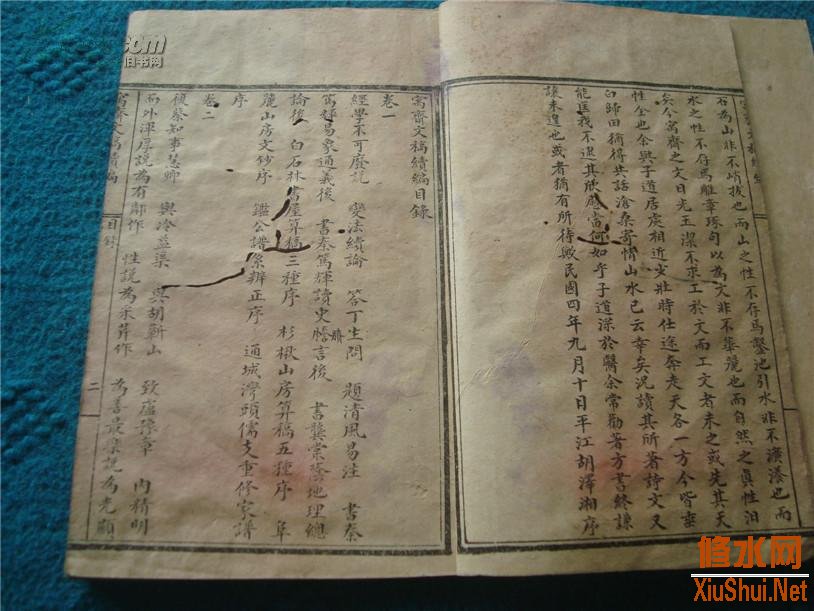 石為山非不峭拔也而山之性不存焉鑿池引水非不漢瀁也而
水之性不存焉雕章琢句以為文非不華競也而自然之真性汨
矣今寓齋之文日光玉潔不求工於文而工文者未之或先其天
性全也余與子道居處相近少壯時仕途奔走天各一方今皆垂
白歸田猶得共話滄桑寄情山水已云幸矣況讀其所著詩文又
能匡我不逮其欣慰當何如乎子道深於醫余常勸著方書終謙
讓未遑也或者猶有所待歟民國四年九月十日平江胡澤湘序
寓齋文稿續編目錄
卷一
經學不可廢說 變法續論 答丁生問 題清風易注 書秦
篤輝易象通義後 書秦篤輝讀史賸言後 書龔棠蔭地理總
論後 白石林書屋算稿三種序 杉楸山房算稿五種序 阜
麓山房文鈔序 鑑公譜系辨正序 通城灣頭儒支重修家譜
序
卷二
復蔡知事慧卿 與冷益渠 與胡蘄山 致盧豫章 內精明
而外渾厚說為有鄰作 性說為采萍作 為善最樂說為光顯
寓齋文稿續編 目錄 二
.com
旧书网
修水网
XiuShui.Net